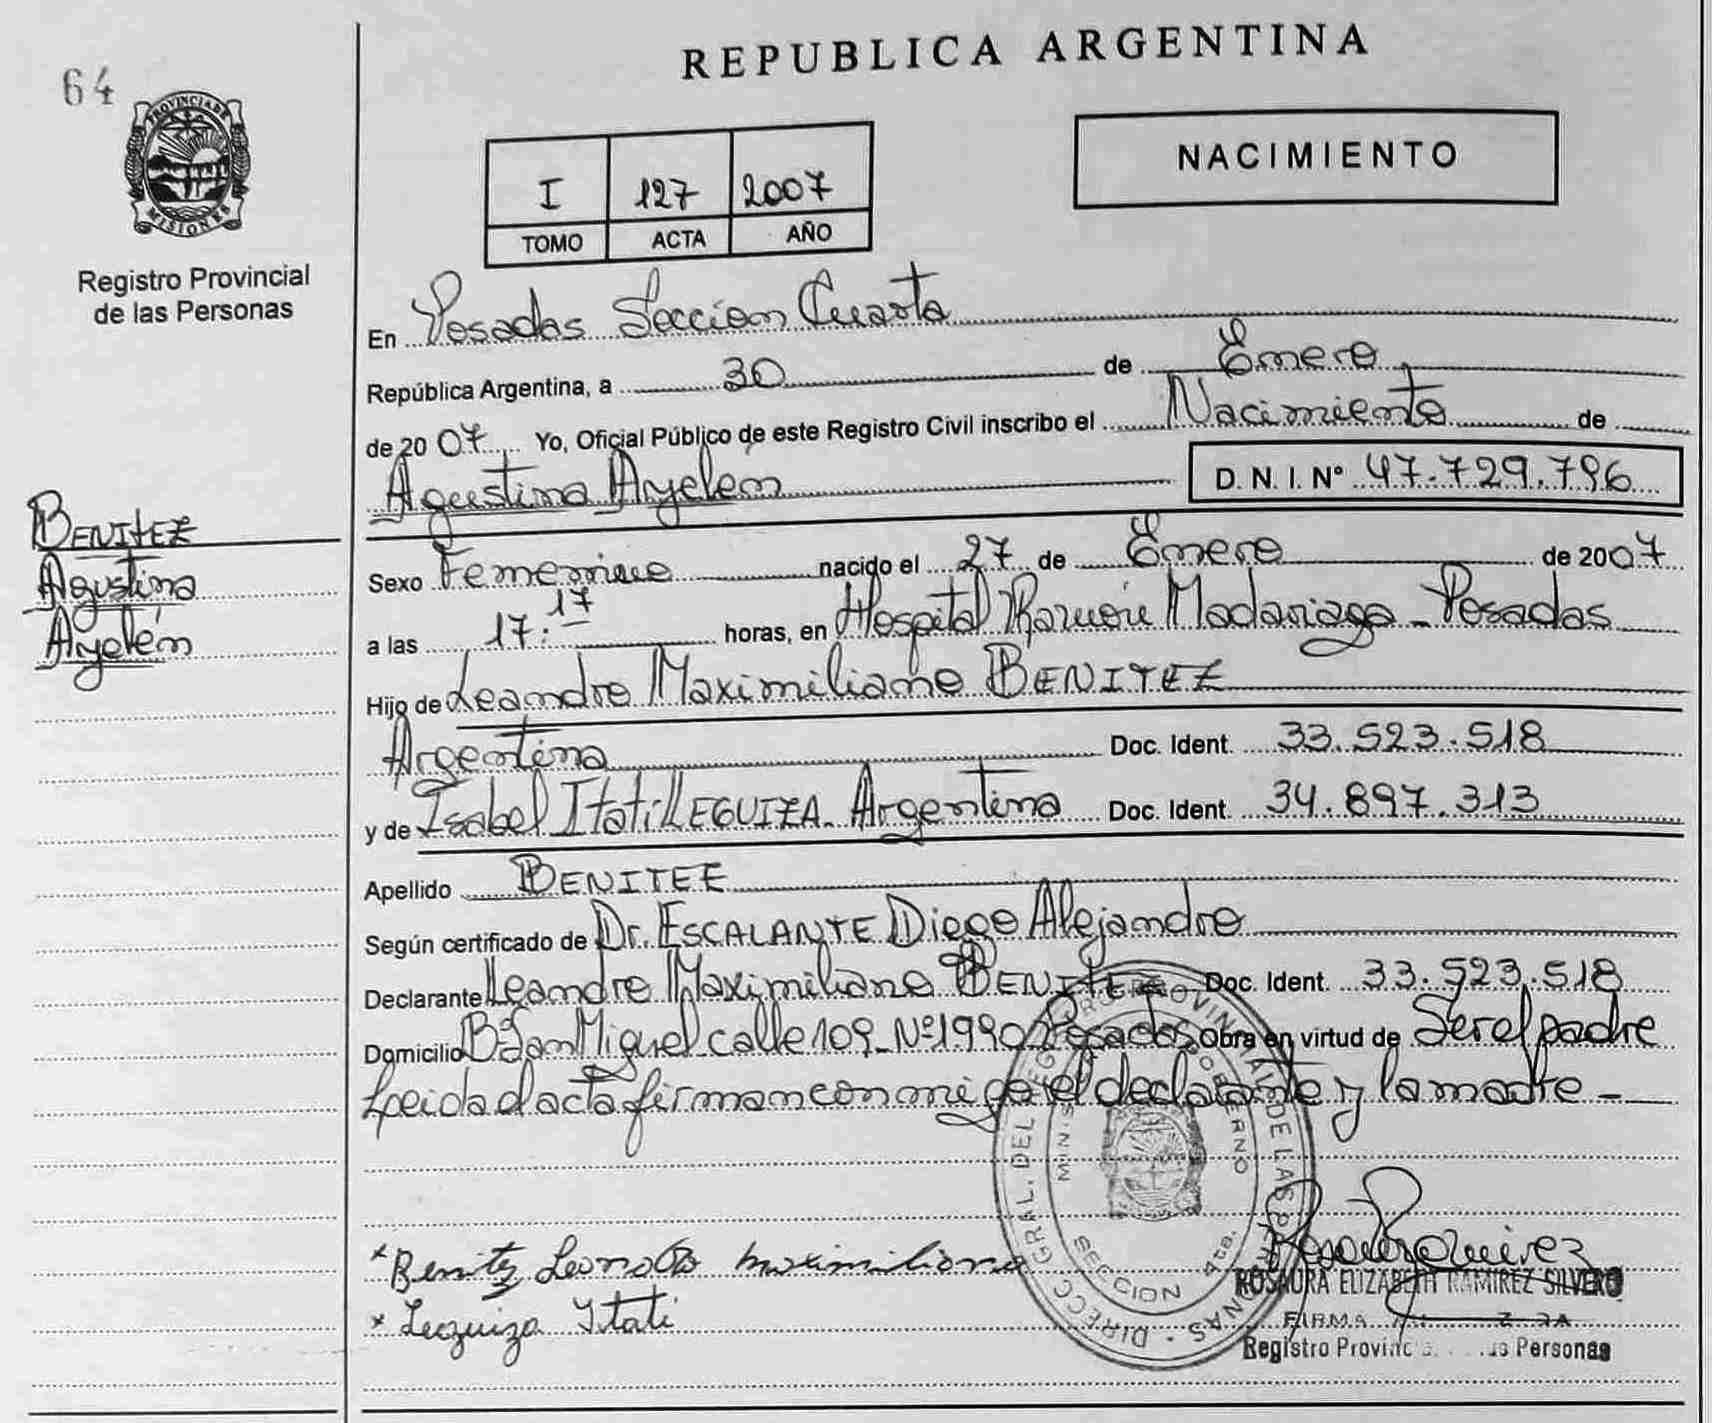 64
PROVINCIA DE
MISIONES
Registro Provincial
de las Personas
REPUBLICA ARGENTINA
I 127 2007
TOMO ACTA AÑO
NACIMIENTO
En Posadas Seccion Cuarta
República Argentina, a 30 de Enero
de 2007 Yo, Oficial Público de este Registro Civil inscribo el Nacimiento de
Agustina Ayelen D. N. I. N° 47.729.796
BENITEZ
Agustina
Ayelén
Sexo Femenino nacido el 27 de Enero de 2007
a las 17:17 horas, en Hospital Ramón Madariaga - Posadas
Hijo de Leandro Maximiliano BENITEZ
Argentina Doc. Ident. 33.523.518
y de Isabel Itati LEGUIZA - Argentina Doc. Ident. 34.897.313
Apellido BENITEZ
Según certificado de Dr. ESCALANTE Diego Alejandro
Declarante Leandro Maximiliano BENITEZ Doc. Ident. 33.523.518
Domicilio Bº San Miguel calle 109 - Nº 1990 Posadas Obra en virtud de Ser el padre
Leida el acta firman conmigo el declarante y la madre -
DIRECC. GRAL. DEL REGISTRO PROVINCIAL DE LAS PERSONAS
SECCION 4ta.
* Benitez Leandro maximiliano
* Leguiza Itati
ROSAURA ELIZABETH RAMIREZ SILVERO
FIRMA
Registro Provincial de las Personas